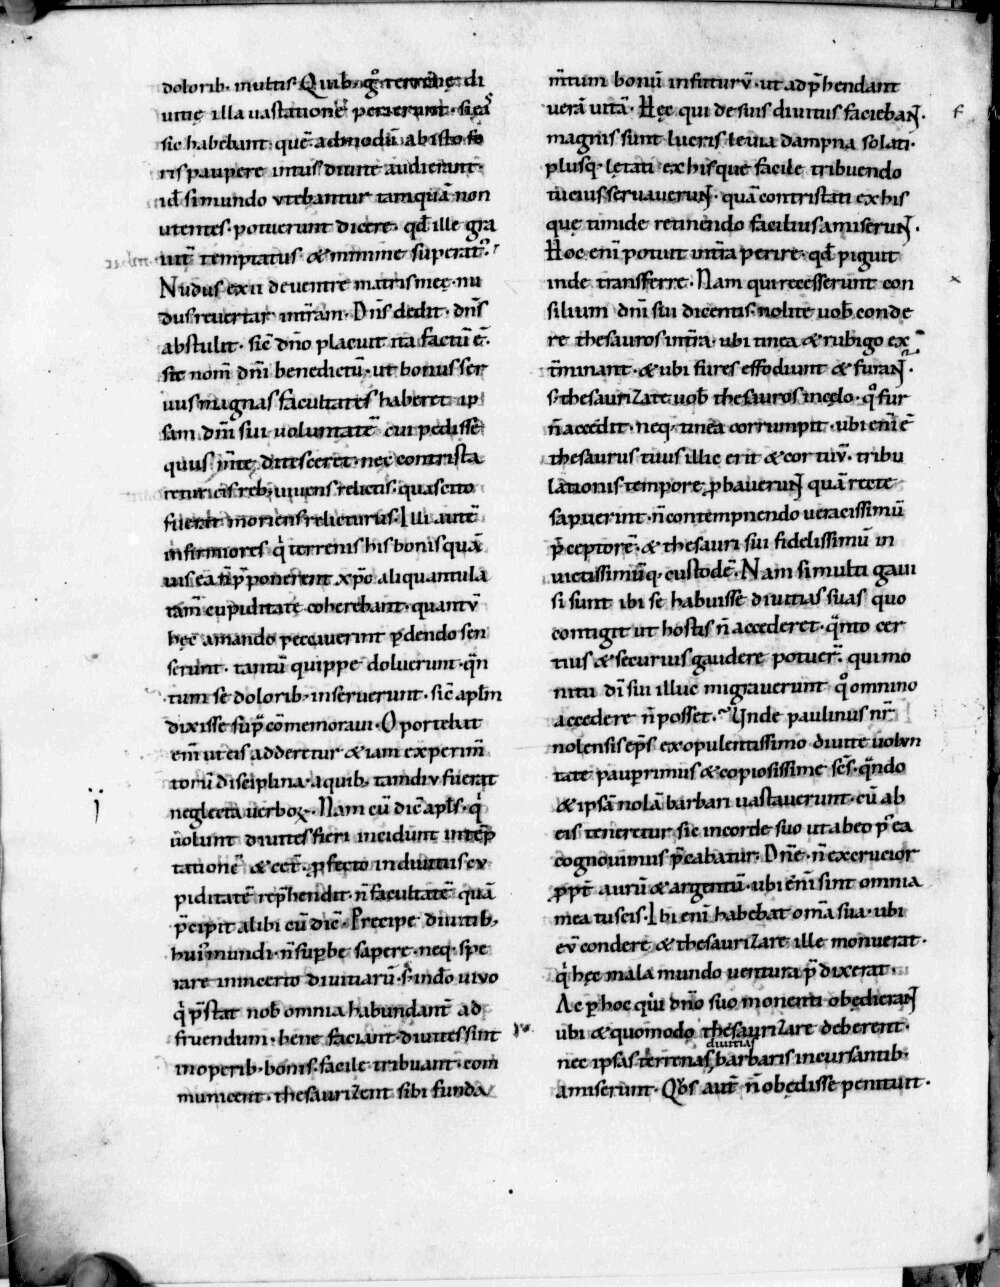 dolorib· multis· Quib· gͦ terrenę di
uitię illa uastatione perierunt· si eas
sic habebant· quē admodū ab isto fo
ris paupere intus diuite audierant·
id ̄ si mundo vtebantur tamquā non
utentes· potuerunt dicere· qd̄ ille gra
uit̄ temptatus & minime superat᷒·
Nudus exii de ventre matris meę· nu
dus reuertar in tr̄am· Dn̄s dedit· dn̄s
abstulit· sic̄ dn̄o placuit ita factū ē·
sit nom̄ dn̄i benedictū· ut bonus ser
uus magnas facultates haberet ip
sam dn̄i sui uoluntatē cui pedisse
quus m̄te ditesceret· nec contrista
retur eis reb; uiuens relictis· quas cito
fuerat moriens relicturus· Illi autē
infirmiores q̇ terrenis his bonis quā
uis ea n̄ p̄ponerent xp̄o aliquantula
tam̄ cupiditate coherebant· quantv̄
hęc amando peccauerint p̱dendo sen
serunt· tantū quippe doluerunt· qn̄
tum se dolorib; inseruerunt· sic̄ apl̄m
dixisse sup̄ cōmemoraui· Oportebat
em̄ ut eis adderetur & iam experim̄
torū disciplina· a quib; tamdiv fuerat
neglecta uerboꝝ· Nam cū dic̄ apl̄s· q̇
uolunt diuites fieri incidunt in tēp
tationē & cet̄· p̱fecto in diuitiis cv
piditatē rep̄hendit· n̄ facultatē quā
p̄cipit alibi cū dic̄· Precipe diuitib;
hui᷒ mundi· n̄ sup̱be sapere· neq· spe
rare in incerto diuitiarū· s; in dō uivo
q̇ p̄stat nob̄ omnia habundant̄ ad
fruendum· bene faciant· diuites sint
in operib; bonis· facile tribuant· com
municent· thesaurizent sibi funda
m̄tum bonū in futurv̄· ut adp̄hendant
uerā uitā· Hęc qui de suis diuitiis faciebaɴ̄·
magnis sunt lucris leuia dampna solati·
plusq· lętati ex his que facile tribuendo
tucius seruaueruɴ̄· quā contristati ex his
quę timide retinendo facilius amiseruɴ̄·
Hoc eni potuit in tr̄a perire· qd̄ piguit
inde transferre· Nam qui recesserunt con
silium dn̄i sui dicentis· nolite uob̄ conde
re thesauros in tr̄a· ubi tinea & rubigo ex
t̄minant· & ubi fures effodiunt & furaɴ̄·
s; thesaurizate uob̄ thesauros in cęlo· qͦ fur
n̄ accedit· neq· tinea corrumpit· ubi enī ē
thesaurus tuus illic erit & cor tuv̄· tribu
lationis tempore p̱bauerunɴ̄ quā recte
sapuerint· n̄ contempnendo ueracissimū
p̄ceptorē· & thesauri sui fidelissimū in
uictissimūq· custodē· Nam si multi gaui
si sunt ibi se habuisse diuitias suas quo
contigit ut hostis n̄ accederet· qn̄to cer
tius & securius gaudere potuer̄· qui mo
nitu dī sui illuc migrauerunt qͦ omnino
accedere n̄ posset· Vnde paulinus nr̄
nolensis ep̄s ex opulentissimo diuite uolvn
tate paup̱rimus & copiosissime sc̄s· qn̄do
& ipsā nolā barbari uastauerunt· cū ab
eis teneretur· sic in corde suo ut ab eo p̄ ea
cognouimus p̄cabatur· Dn̄e· n̄ excrucior
p̱pt̄ aurū & argentū· ubi enī sint omnia
mea tu scis· Ibi enī habebat om̄a sua· ubi
ev̄ condere & thesaurizare ille monuerat·
q̇ hęc mala mundo ventura p̄dixerat·
Ac p̱ hoc qui dn̄o suo monenti obędieraɴ̄
ubi & quomodo thesaurizare deberent·
nec ipsas terrenas diuitias barbaris incursantib;
amiserunt· Qͦs aut̄ n̄ obędisse penituit·